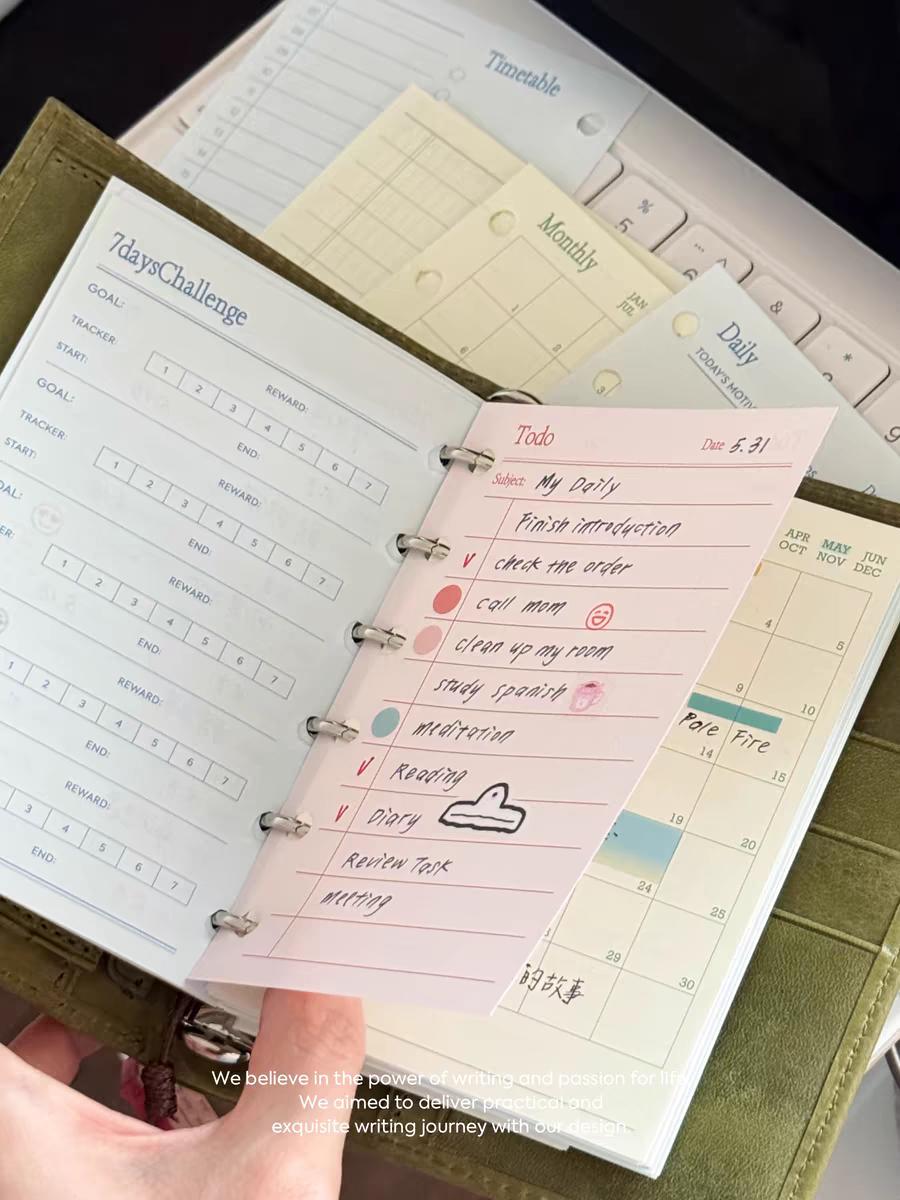 Timetable
Monthly
JAN
JUL
1
6
8
Daily
TODAY'S MOTIV
%
5
...
^
6
&
*
9
7daysChallenge
GOAL:
TRACKER:
1 2 3 4 5 6 7
REWARD:
START:
END:
GOAL:
TRACKER:
1 2 3 4 5 6 7
REWARD:
START:
END:
OAL:
ER:
1 2 3 4 5 6 7
REWARD:
END:
1 2 3 4 5 6 7
REWARD:
END:
3 4 5 6 7
REWARD:
END:
Todo
Date 5.31
Subject: My Daily
Finish introduction
✓ check the order
call mom
clean up my room
study spanish
meditation
✓ Reading
✓ Diary
Review Task
meeting
APR MAY JUN
OCT NOV DEC
4 5
9 10
Pale Fire
14 15
19 20
24 25
29 30
的故事
We believe in the power of writing and passion for life.
We aimed to deliver practical and
exquisite writing journey with our design.